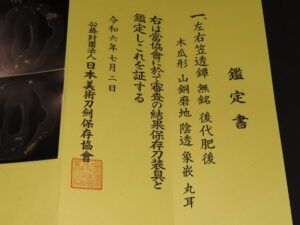 鑑定書
一、左右笠透鐔 無銘 後代肥後
木瓜形 山銅磨地 陰透 象嵌 丸耳
右は當協會に於て審査の結果保存刀装具と
鑑定しこれを証する
令和六年七月二日
公益財団法人 日本美術刀劍保存協會